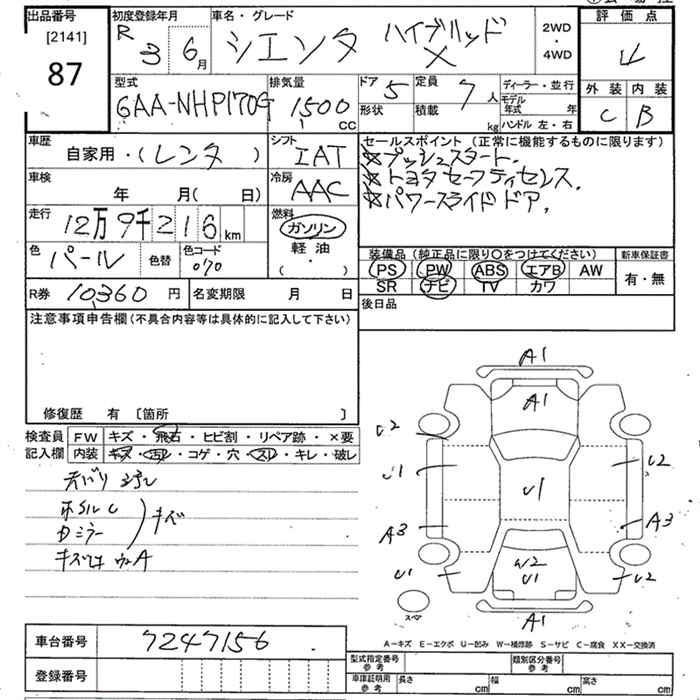 出品番号 初度登録年月 車名・グレード 評価点
[2141] R 3 6月 シエンタ ハイブリッド X 2WD・4WD 4
87
型式 排気量 ドア 5 定員 7人 ディーラー・並行 外装 内装
6AA-NHP170G 1500cc 形状 積載 kg モデル年式 年 C B
ハンドル 左・右
車歴 シフト セールスポイント (正常に機能するものに限ります)
自家用・(レンタ) IAT ※プッシュスタート.
車検 冷房 ※トヨタセーフティセンス.
年 月( 日) AAC ※パワースライドドア.
走行 燃料
12万9千216km ガソリン
色 パール 色替 色コード 070 軽油・ 装備品 (純正品に限り○をつけてください) 新車保証書
PS PW ABS エアB AW 有・無
R券 10360円 名変期限 月 日 SR ナビ TV カワ
注意事項申告欄 (不具合内容等は具体的に記入して下さい) 後日品
修復歴 有 [箇所 ]
検査員 FW キズ・飛石・ヒビ割・リペア跡・×要
記入欄 内装 キズ・汚れ・コゲ・穴・スレ・キレ・破レ
キズ
A1
A1
U2
U1 U2
U1
A3 A3
W2
U1
U1 U2
スペア
A1
A-キズ E-エクボ U-凹み W-補修跡 S-サビ C-腐食 XX-交換済
車台番号 7247156
登録番号
型式指定番号 参考 類別区分番号 参考
車庫証明用 参考 長さ cm 幅 cm 高さ cm